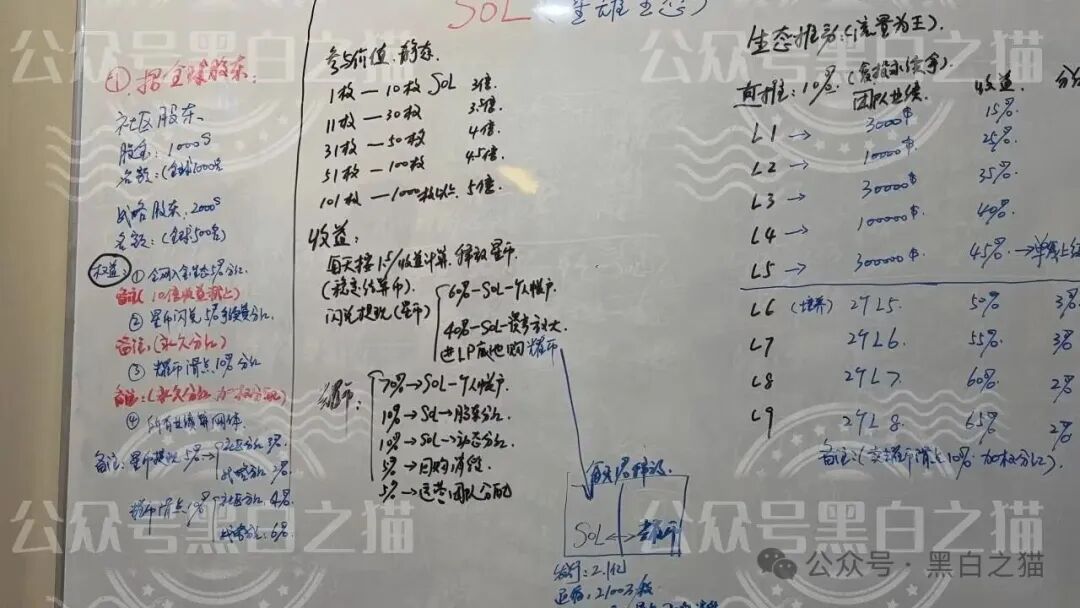 SOL(星雄生态)
① 招全球股东:
社区股东
股金:1000$
名额:(全球1000名
战略股东:2000$
名额:(全球500名)
权益
① 全网入金生态5%分红
备注(10倍收益截止)
② 星币闪兑5%手续费分红
备注(永久分红)
③ 耀币滑点10%分红
备注:(永久分红 加权分配)
④ 所有业绩算团体
备注:星币提现5%→社区分红3%
战略分红2%
耀币滑点10%→社区分红4%
战略分红6%
参与价值.静态
1枚—10枚 SOL 3倍
11枚—30枚 3.5倍
31枚—50枚 4倍.
51枚—100枚 4.5倍.
101枚—1000枚以上 5倍.
收益:
每天按1%收益计算.释放星币
(稳定结算币)
闪兑提现(星币)
60%—SOL—个人账户
40%—SOL—
进LP底池购耀币
耀币:
70%→SOL—个人账户
10%→SOL→股东分红
10%→SOL→动态分红
5%→回购销毁
5%→运营团队分配
SOL↔耀币
发行:2.1亿
2100万枚
生态推广:(流量为王).
直推:10%.
团队业绩. 收益.
L1 → 3000$ 15%
L2 → 10000$ 25%
L3 → 30000$ 35%
L4 → 100000$ 40%
L5 → 300000$ 45%
L6 (培养) 2个L5. 50% 3%
L7 2个L6. 55% 3%
L8 2个L7. 60% 2%
L9 2个L8. 65% 2%
备注:(交耀币滑点10%加权分红).
公众号黑白之猫
公众号黑白之猫
公众号黑白之猫
公众号黑白之猫
公众号·黑白之猫